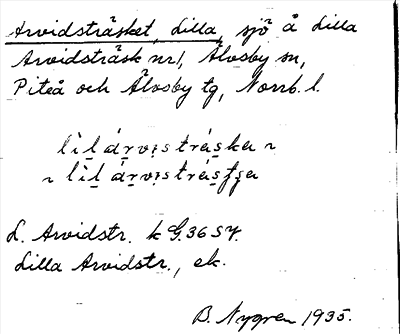 Arvidsträsket, Lilla, sjö å Lilla
Arvidsträsk nr 1, Älvsby sn,
Piteå och Älvsby tg, Norrb. l.
L. Arvidstr. k G. 36 SV.
Lilla Arvidstr., ek.
B. Nygren 1935.